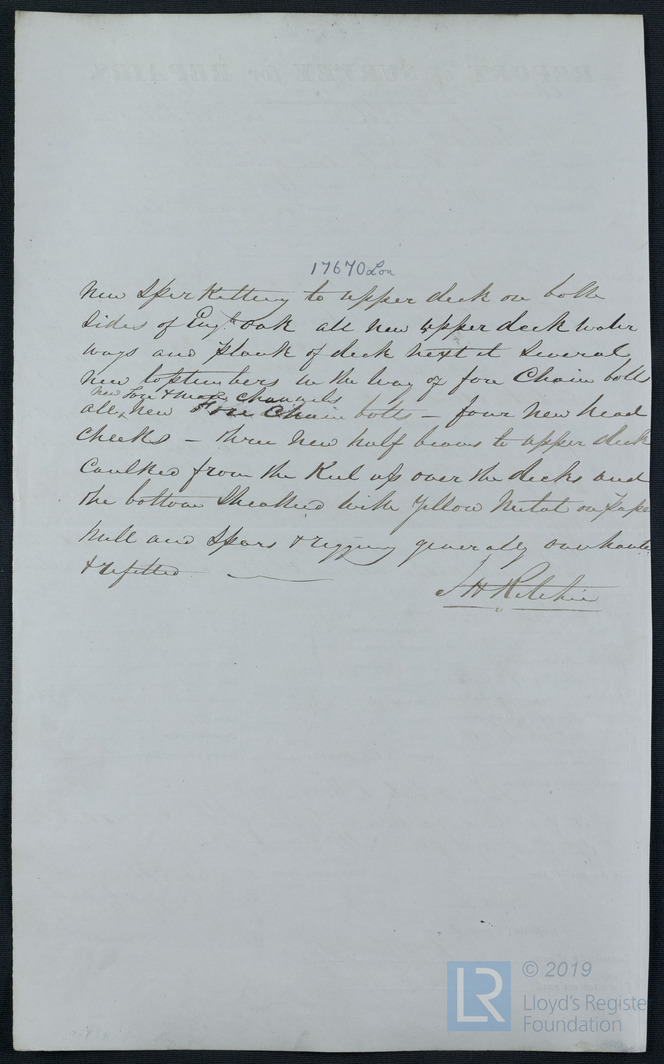 17670 Lon
New Spirketting to upper deck on both
Sides of Engh oak all new upper deck water
ways and plank of deck next it Several
new toptimbers in the way of fore Chain bolts
new fore & main Channels
all new Fore Chain bolts – four new head
Cheeks – three new half beams to upper deck
Caulked from the Keel up over the decks and
the bottom Sheathed with Yellow Metal on
Hull and Spars & rigging generally
& refitted
J H Ritchie
LR
© 2019
Lloyd's Registe
Foundation